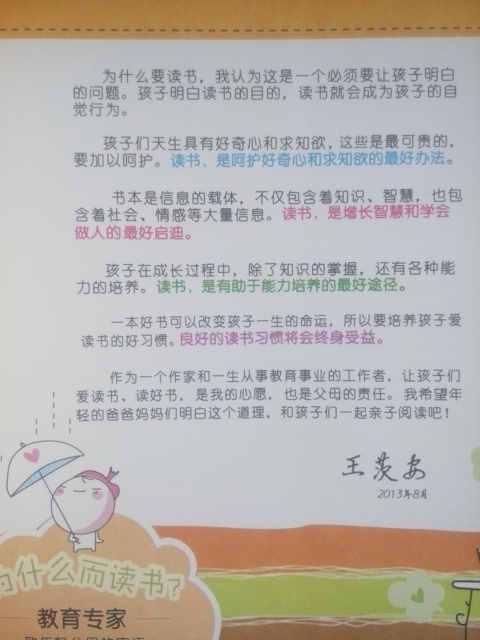 为什么要读书，我认为这是一个必须要让孩子明白
的问题。孩子明白读书的目的，读书就会成为孩子的自
觉行为。
孩子们天生具有好奇心和求知欲，这些是最可贵的，
要加以呵护。读书，是呵护好奇心和求知欲的最好办法。
书本是信息的载体，不仅包含着知识、智慧，也包
含着社会、情感等大量信息。读书，是增长智慧和学会
做人的最好启迪。
孩子在成长过程中，除了知识的掌握，还有各种能
力的培养。读书，是有助于能力培养的最好途径。
一本好书可以改变孩子一生的命运，所以要培养孩子爱
读书的好习惯。良好的读书习惯将会终身受益。
作为一个作家和一生从事教育事业的工作者，让孩子们
爱读书、读好书，是我的心愿，也是父母的责任。我希望年
轻的爸爸妈妈们明白这个道理，和孩子们一起亲子阅读吧！
王茨安
2013年8月
为什么而读书？
教育专家